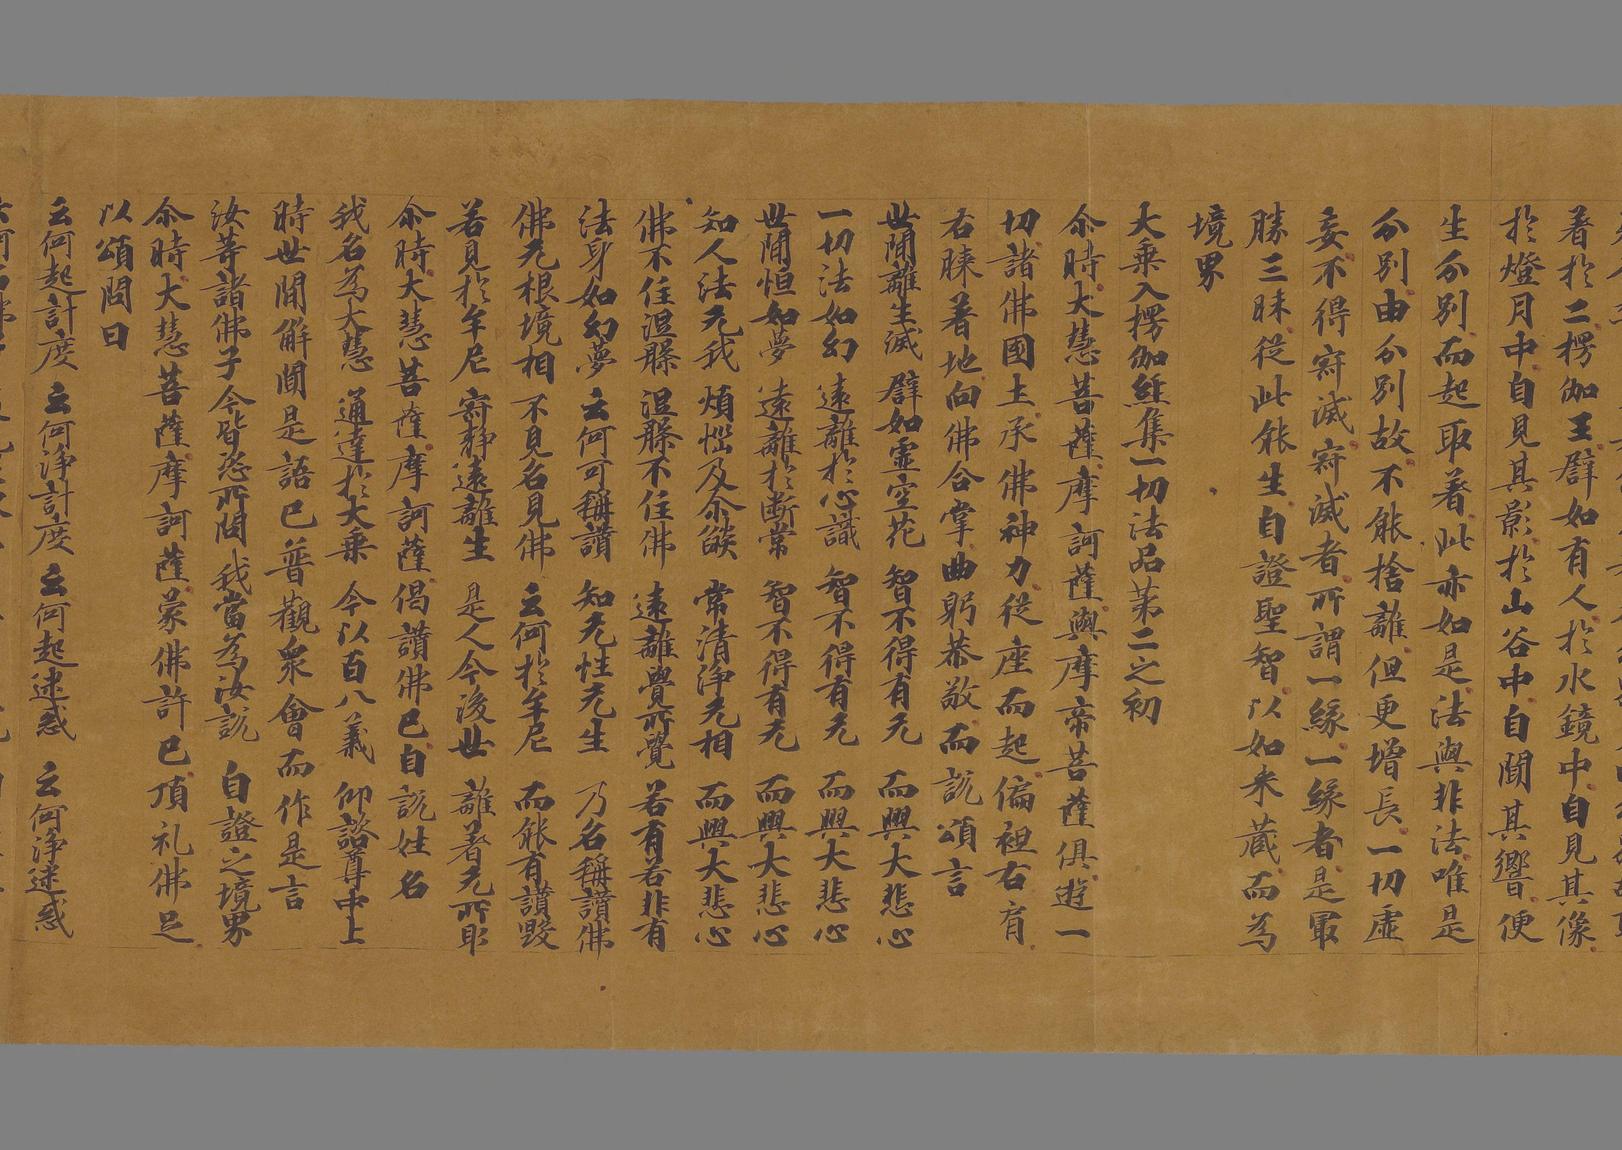 著於二楞伽王譬如有人於水鏡中自見其像
於燈月中自見其影於山谷中自聞其響便
生分別而起取著此亦如是法與非法唯是
分別由分別故不能捨離但更增長一切虛
妄不得寂滅寂滅者所謂一緣一緣者是㝡
勝三昧從此能生自證聖智以如来藏而為
境界
大乗入楞伽經集一切法品第二之初
尒時大慧菩薩摩訶薩與摩帝菩薩俱遊一
切諸佛國土承佛神力從座而起偏袒右肩
右膝著地向佛合掌曲躬恭敬而說頌言
世間離生滅 譬如虛空花 智不得有无 而興大悲心
一切法如幻 遠離於心識 智不得有无 而興大悲心
世間恒如夢 遠離於断常 智不得有无 而興大悲心
知人法无我 煩惱及尒燄 常清淨无相 而興大悲心
佛不住涅槃 涅槃不住佛 遠離覺所覺 若有若非有
法身如幻夢 云何可稱讚 知无性无生 乃名稱讚佛
佛无根境相 不見名見佛 云何於牟尼 而能有讚毀
若見於牟尼 寂静遠離生 是人今後世 離著无所取
尒時大慧菩薩摩訶薩偈讚佛已自說姓名
我名為大慧 通達於大乗 今以百八義 仰諮尊中上
時世間解聞是語已普觀衆會而作是言
汝等諸佛子 今皆恣所問 我當為汝說 自證之境界
尒時大慧菩薩摩訶薩蒙佛許已頂礼佛足
以頌問曰
云何起計度 云何淨計度 云何起迷惑 云何淨迷惑